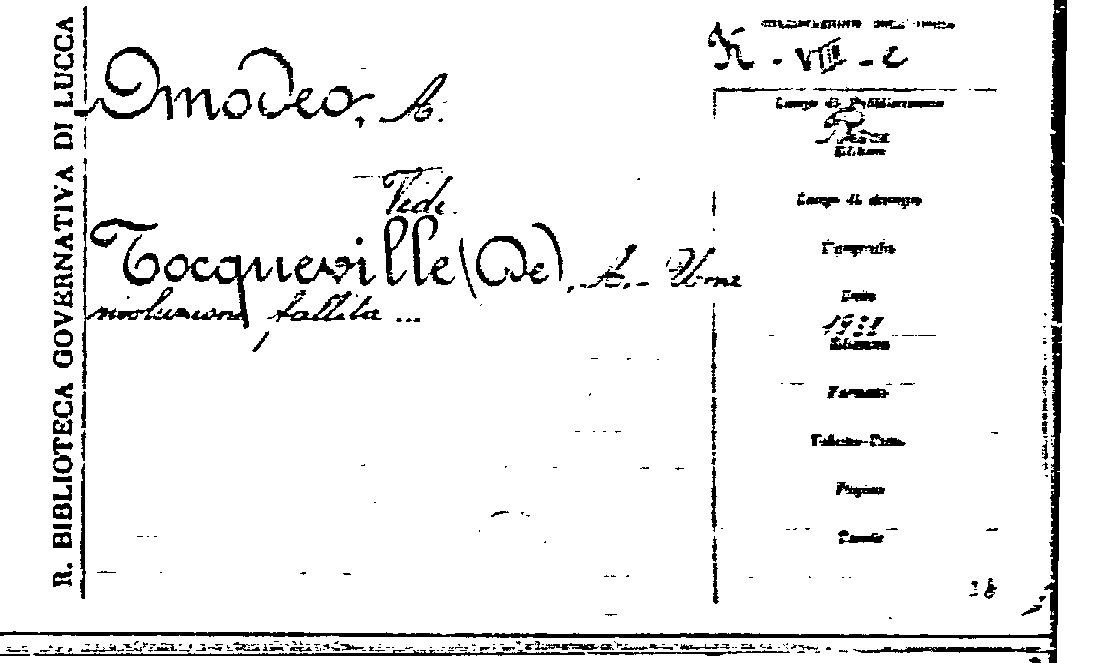 R. BIBLIOTECA GOVERNATIVA DI LUCCA
K - VIII - c
Omodeo, A.
Vedi
Tocqueville (De), A. - Una
rivoluzione fallita ...
Luogo di Pubblicazione
Editore
Luogo di stampa
Tipografia
Data
Edizione
Formato
Pagine
Tavole